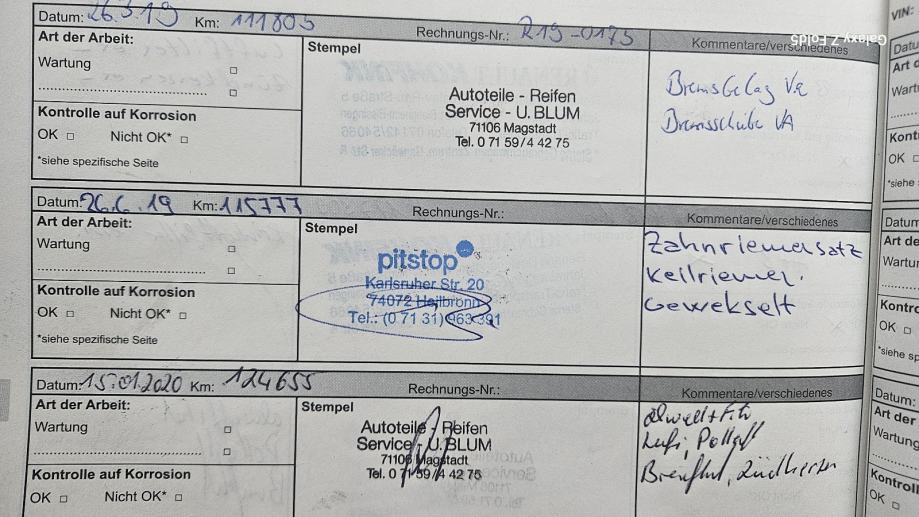 Datum: 26.3.19 Km: 111805 Rechnungs-Nr.: R19-0175 Kommentare/verschiedenes
Galaxy Z Fold5
Art der Arbeit:
Wartung
Kontrolle auf Korrosion
OK Nicht OK*
*siehe spezifische Seite
Stempel
Autoteile - Reifen
Service - U. BLUM
71106 Magstadt
Tel. 0 71 59/4 42 75
Bremsbelag VA
Bremsscheibe VA
Datum: 26.6.19 Km: 115777 Rechnungs-Nr.: Kommentare/verschiedenes
Art der Arbeit:
Wartung
Kontrolle auf Korrosion
OK Nicht OK*
*siehe spezifische Seite
Stempel
pitstop
Karlsruher Str. 20
74072 Heilbronn
Tel.: (0 71 31) 963 391
Zahnriemensatz
Keilriemen.
Gewekselt
Datum: 15.01.2020 Km: 124655 Rechnungs-Nr.: Kommentare/verschiedenes
Art der Arbeit:
Wartung
Kontrolle auf Korrosion
OK Nicht OK*
Stempel
Autoteile - Reifen
Service - U. BLUM
71106 Magstadt
Tel. 0 71 59/4 42 75
Ölwe+Fi
Lufi, Pollenf
Bremsfl, Zündkerzen
VIN: